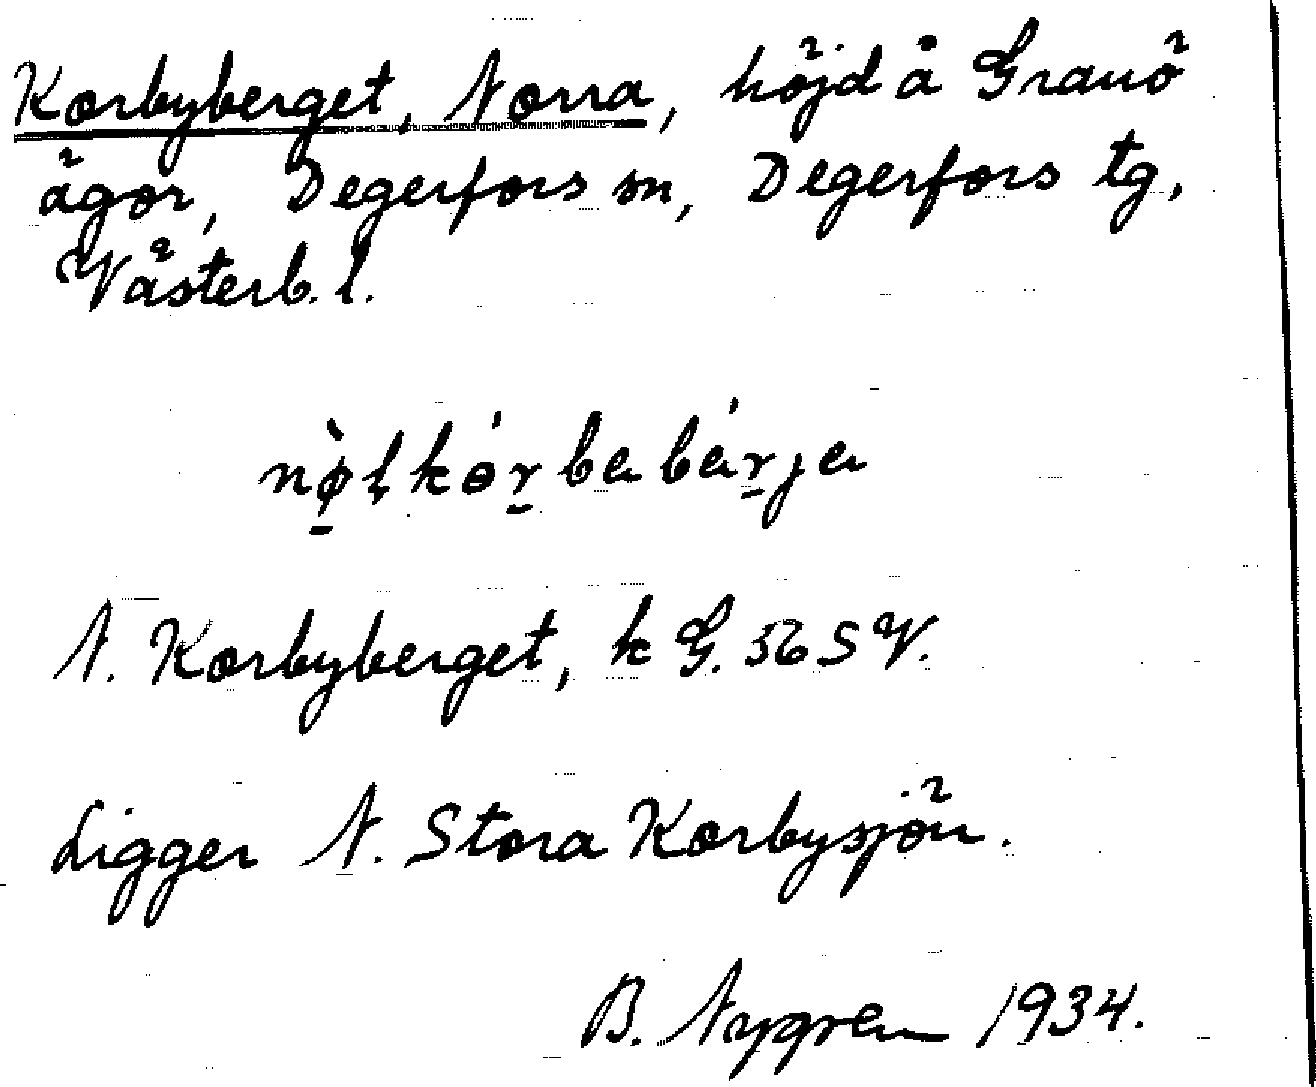 Korbyberget, Norra, höjd å Granö
ägor, Degerfors sn, Degerfors tg,
Västerb. l.
N. Korbyberget, k G. 56 SV.
Ligger N. Stora Korbysjön.
B. Nygren 1934.